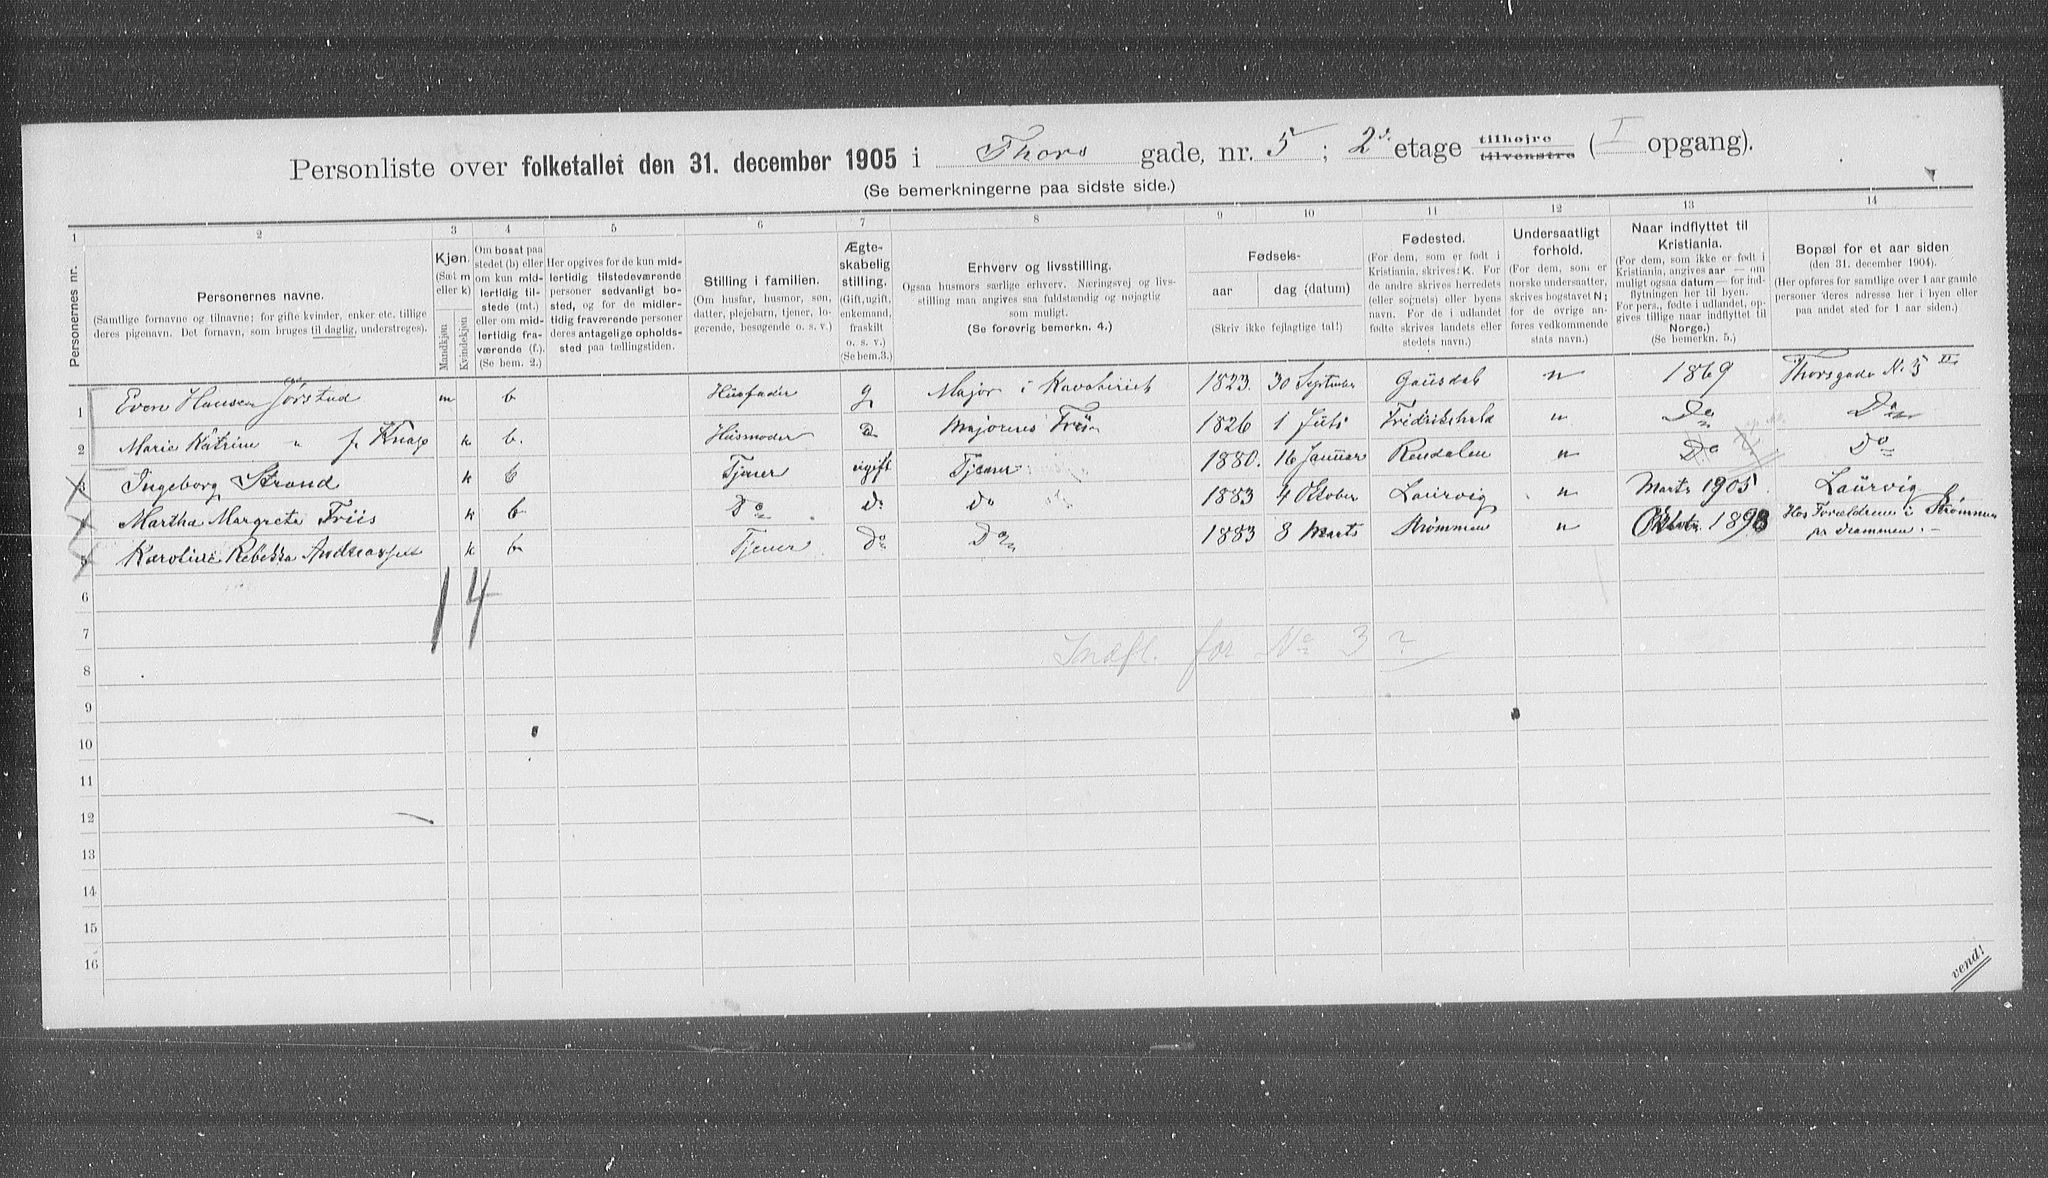 Personliste over folketallet den 31. december 1905 i Thors gade, nr. 5; 2den etage tilhøjre (I opgang).
tilvenstre
(Se bemerkningerne paa sidste side.)
1 2 3 4 5 6 7 8 9 10 11 12 13 14
Personernes nr.
Personernes navne.
(Samtlige fornavne og tilnavne; for gifte kvinder, enker etc. tillige
deres pigenavn. Det fornavn, som bruges til daglig, understreges).
Kjøn.
(Sæt m
eller k)
Mandkjøn
Kvindekjøn
Om bosat paa
stedet (b) eller
om kun mid-
lertidig til-
stede (mt.)
eller om mid-
lertidig fra-
værende (f.).
(Se bem. 2.)
Her opgives for de kun mid-
lertidig tilstedeværende
personer sedvanligt bo-
sted, og for de midler-
tidig fraværende personer
deres antagelige opholds-
sted paa tællingstiden.
Stilling i familien.
(Om husfar, husmor, søn,
datter, plejebarn, tjener, lo-
gerende, besøgende o. s. v.)
Ægte-
skabelig
stilling.
(Gift, ugift,
enkemand,
fraskilt
o. s. v.)
(Se bem. 3.)
Erhverv og livsstilling.
Ogsaa husmors særlige erhverv. Næringsvej og livs-
stilling maa angives saa fuldstændig og nøjagtig
som muligt.
(Se forøvrig bemerkn. 4.)
Fødsels-
aar
dag (datum)
(Skriv ikke fejlagtige tal!)
Fødested.
(For dem, som er født i
Kristiania, skrives: K. For
de andre skrives herredets
(eller sojnets) eller byens
navn. For de i udlandet
fødte skrives landets eller
stedets navn.)
Undersaatligt
forhold.
(For dem, som er
norske undersaatter,
skrives bogstavet N;
for de øvrige an-
føres vedkommende
stats navn.)
Naar indflyttet til
Kristiania.
(For dem, som ikke er født i
Kristiania, angives aar — om
muligt ogsaa datum — for ind-
flytningen her til byen. For
pers., fødte i udlandet, op-
gives tillige naar indflyttet til
Norge.)
(Se bemerkn. 5.)
Bopæl for et aar siden
(den 31. december 1904).
(Her opføres for samtlige over 1 aar gamle
personer deres adresse her i byen eller
paa andet sted for 1 aar siden.)
1 Even Hansen Jørstad m b Husfader g Major i Kavaleriet 1823. 30 September Gausdal n 1869 Thorsgade N. 5 II
2 Marie Katrine " f. Knap k b. Husmoder Do Majorens Frue 1826 1 Juli Fredrikshald n Do Do
3 Ingeborg Strand k b Tjener ugift Tjener 1880. 16 Januar Rendalen n Do Do
4 Martha Margrete Friis k b Do Do Do 1883 4 Oktober Laurvig n Marts 1905 Laurvig
5 Karoline Rebekka Andreassen k b Tjener Do Do 1883 8 Marts Strømmen n Oktbr. 1898 Hos Forældrene i Strømmen
pr Drammen. —
6 1 4
7
Indfl. for No 3?
8
9
10
11
12
13
14
15
16
vend!